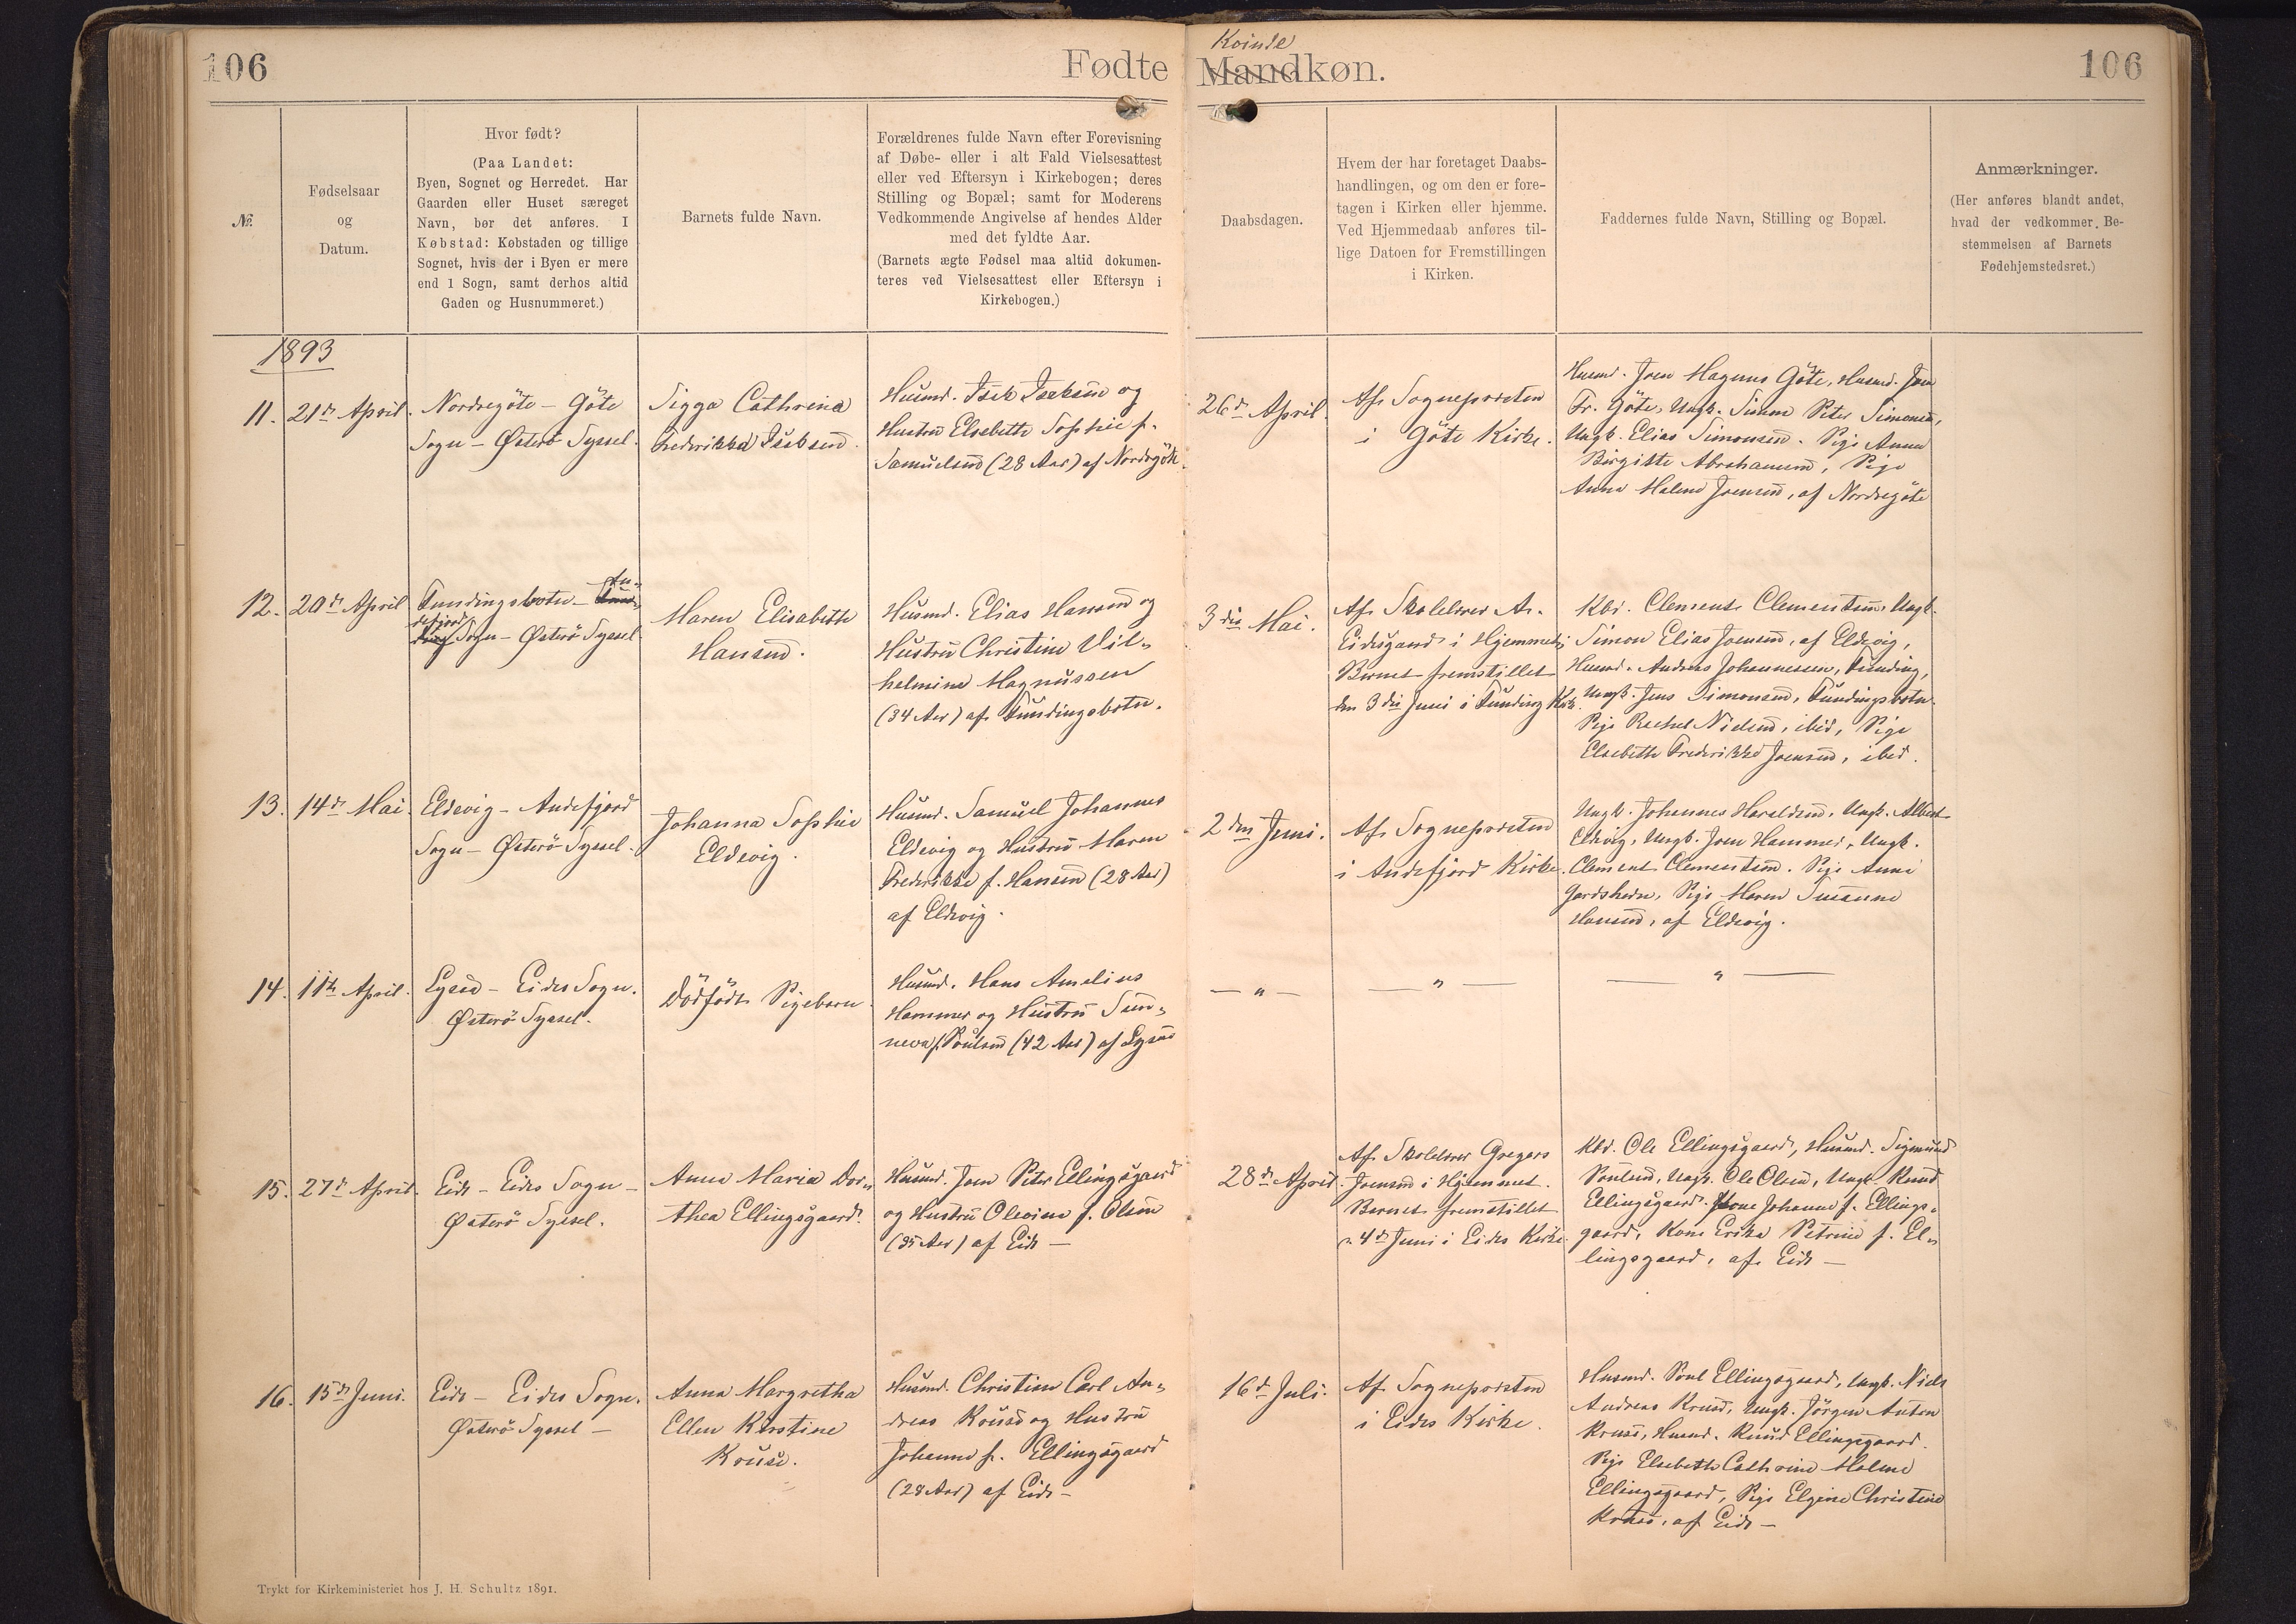 106
Fødte
Kvinde
Mandkøn.
106
№
Fødselsaar
og
Datum.
Hvor født?
(Paa Landet:
Byen, Sognet og Herredet. Har
Gaarden eller Huset særeget
Navn, bør det anføres. I
Købstad: Købstaden og tillige
Sognet, hvis der i Byen er mere
end 1 Sogn, samt derhos altid
Gaden og Husnummeret.)
Barnets fulde Navn.
Forældrenes fulde Navn efter Forevisning
af Døbe- eller i alt Fald Vielsesattest
eller ved Eftersyn i Kirkebogen; deres
Stilling og Bopæl; samt for Moderens
Vedkommende Angivelse af hendes Alder
med det fyldte Aar.
(Barnets ægte Fødsel maa altid dokumen-
teres ved Vielsesattest eller Eftersyn i
Kirkebogen.)
Daabsdagen.
Hvem der har foretaget Daabs-
handlingen, og om den er fore-
tagen i Kirken eller hjemme.
Ved Hjemmedaab anføres til-
lige Datoen for Fremstillingen
i Kirken.
Faddernes fulde Navn, Stilling og Bopæl.
Anmærkninger.
(Her anføres blandt andet,
hvad der vedkommer Be-
stemmelsen af Barnets
Fødehjemstedsret.)
1893
11.
21de April.
Nordregöte - Göte
Sogn - Østerö Syssel.
Sigga Cathrina
Frederikka Isaksen.
Husmd. Isak Isaksen og
Hustru Elsebeth Sophie f.
Samuelsen (28 Aar) af Nordregöte.
26de April.
Af Sognepræsten
i Göte Kirke.
Husmd. Joen Magnus Göte, Husmd. Joen
Fr. Göte, Ungk. Simon Peter Simonsen,
Ungk. Elias Simonsen. Pige Anna
Birgitte Abrahamsen, Pige
Anna Malene Joensen, af Nordregöte
12.
20de April
Fundingsbotn - An-
defjord
Sogn - Østerö Syssel
Maren Elisabeth
Hansen.
Husmd. Elias Hansen og
Hustru Christine Vil-
helmine Magnussen
(34 Aar) af Fundingsbotn.
3die Mai.
Af Skolelærer A.
Eidesgaard i Hjemmet;
Barnet fremstillet
den 3die Juni i Funding Kirke.
Kbd. Clement Clementsen, Ungk.
Simon Elias Joensen, af Eldevig,
Husmd. Andreas Johannesen, Funding,
Ungk. Jens Simonsen, Fundingsbotn.
Pige Rachel Nielsen, ibid, Pige
Elsebeth Frederikke Joensen, ibid.
13.
14de Mai.
Eldevig - Andefjord
Sogn - Østerö Syssel.
Johanna Sophie
Eldevig.
Husmd. Samuel Johannes
Eldevig og Hustru Maren
Frederikke f. Hansen (28 Aar)
af Eldevig.
2den Juni.
Af Sognepræsten
i Andefjord Kirke.
Ungk. Johannes Haraldsen, Ungk. Albert
Eldevig, Ungk. Joen Hammer, Ungk.
Clement Clementsen. Pige Anna
Pige Maren Susanne
Hansen, af Eldevig.
14.
11te April.
Lysen - Eides Sogn.
Østerö Syssel.
Dödfödt Pigebarn.
Husmd. Hans Amelius
Hammer og Hustru Sun-
neva f. Poulsen (42 Aar) af Lysen
— " —
— " —
— " —
15.
27de April.
Eide - Eides Sogn -
Østerö Syssel.
Anna Maria Dor-
thea Ellingsgaard.
Husmd. Joen Peter Ellingsgaard
og Hustru Olevine f. Olsen
(35 Aar) af Eide —
28de April.
Af Skolelærer Gregers
Joensen i Hjemmet.
Barnet fremstillet
d. 4de Juni i Eides Kirke.
Kbd. Ole Ellingsgaard, Husmd. Sigmund
Poulsen, Ungk. Ole Olsen, Ungk. Knud
Ellingsgaard. Kone Johanne f. Ellings-
gaard, Kone Erika Petrine f. El-
lingsgaard, af Eide —
16.
15de Juni.
Eide - Eides Sogn.
Østerö Syssel —
Anna Margretha
Ellen Kirstine
Kruse.
Husmd. Christian Carl An-
dreas Kruse og Hustru
Johanne f. Ellingsgaard
(28 Aar) af Eide —
16de Juli.
Af Sognepræsten
i Eides Kirke.
Husmd. Poul Ellingsgaard, Ungk. Niels
Andreas Kruse, Ungk. Jörgen Anton
Kruse, Husmd. Knud Ellingsgaard.
Pige Elsebeth Cathrine Malene
Ellingsgaard, Pige Elgine Christine
Kruse, af Eide —
Trykt for Kirkeministeriet hos J. H. Schultz 1891.